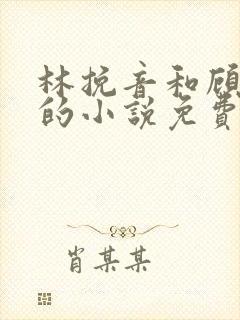 林挽音和顾
的小説免費
肖某某